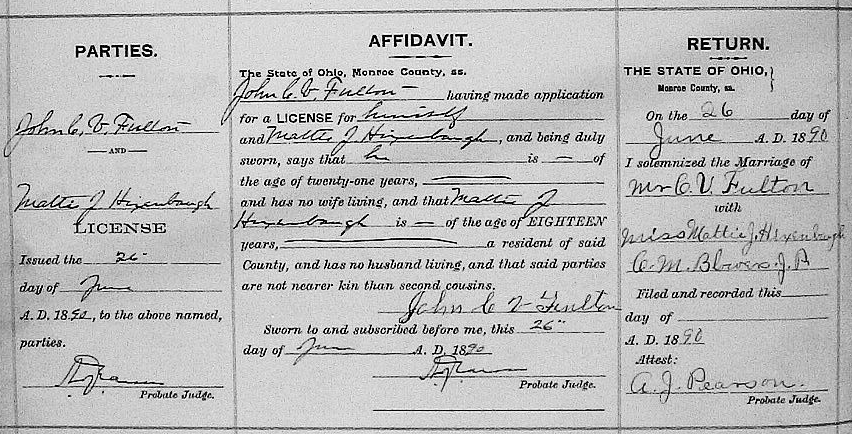 PARTIES.
John C. V. Fulton
AND
Mattie J Hixenbaugh
LICENSE
Issued the 26"
day of June
A. D. 1890, to the above named,
parties.
Probate Judge.
AFFIDAVIT.
The State of Ohio, Monroe County, ss.
John C. V. Fulton having made application
for a LICENSE for himself
and Mattie J Hixenbaugh, and being duly
sworn, says that he is — of
the age of twenty-one years,
and has no wife living, and that Mattie J
Hixenbaugh is — of the age of EIGHTEEN
years, a resident of said
County, and has no husband living, and that said parties
are not nearer kin than second cousins.
John C V Fulton
Sworn to and subscribed before me, this 26"
day of June A. D. 1890
Probate Judge.
RETURN.
THE STATE OF OHIO,
Monroe County, ss.
On the 26 day of
June A. D. 1890
I solemnized the Marriage of
Mr C. V. Fulton
with
Miss Mattie J. Hixenbaugh
C. M. Blowers. J. P
Filed and recorded this
day of
A. D. 1890
Attest:
A. J. Pearson.
Probate Judge.